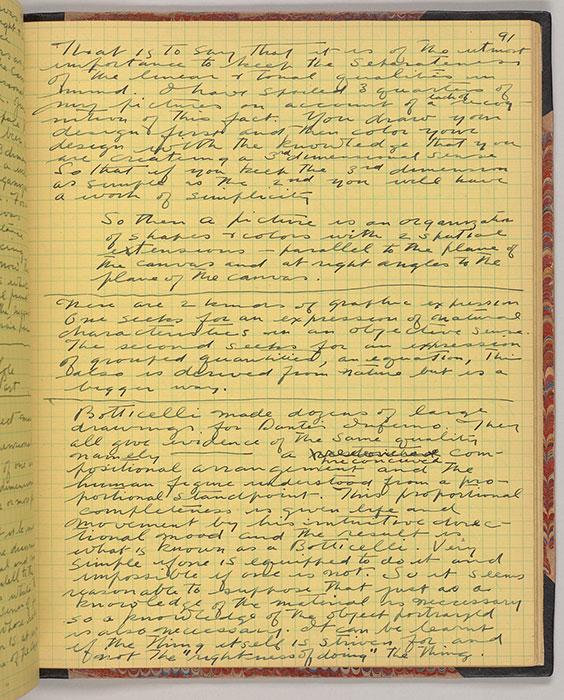 91
That is to say that it is of the utmost
importance to keep the separateness
of the linear & tonal qualities in
mind. I have spoiled 3 quarters of
my pictures on account of a lack of recog-
nition of this fact. You draw your
design first and then color your
design with the knowledge that you
are creating a 3rd dimensional sense
So that if you keep the 3rd dimension
as simple as the 2nd you will have
a work of simplicity
So then a picture is an organization
of shapes & colors with 2 spatial
extensions - parallel to the plane of
the canvas and at right angles to the
plane of the canvas.
There are 2 kinds of graphic expression
One seeks for an expression of natural
characteristics in an objective sense.
The second seeks for an expression
of grouped quantities, an equation, this
also is derived from nature but is a
bigger way.
Botticelli made dozens of large
drawings for Dantes Inferno. They
all give evidence of the same quality
namely a preconceived com-
positional arrangement and the
human figure understood from a pro-
portional standpoint. This proportional
completeness is given life and
movement by his intuitive direc-
tional mood and the result is
what is known as a Botticelli. Very
simple if one is equipped to do it and
impossible if one is not. So it seems
reasonable to suppose that just as a
knowledge of the material is necessary
so a knowledge of the object portrayed
is also necessary. It can be learnt
if the thing itself is striven for and
not the "rightness of doing" the thing.